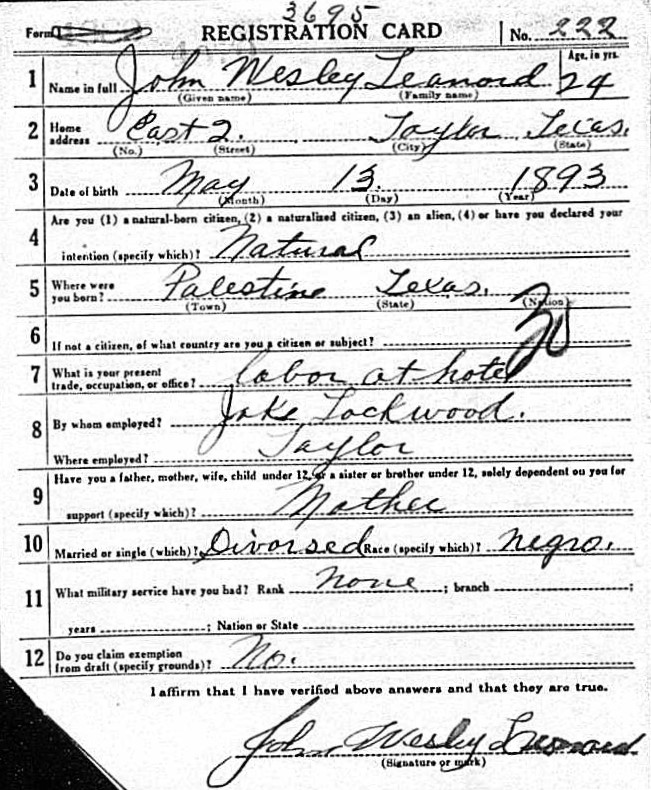 3695
Form 1 REGISTRATION CARD No. 222
1 Name in full John Wesley Leonard Age, in yrs. 24
(Given name) (Family name)
2 Home address East 2. Taylor Texas.
(No.) (Street) (City) (State)
3 Date of birth May 13 1893
(Month) (Day) (Year)
4 Are you (1) a natural-born citizen, (2) a naturalized citizen, (3) an alien, (4) or have you declared your
intention (specify which)? Natural
5 Where were you born? Palestine Texas.
(Town) (State) (Nation)
20
6 If not a citizen, of what country are you a citizen or subject?
7 What is your present trade, occupation, or office? labor at hotel
8 By whom employed? Jake Lockwood.
Where employed? Taylor
9 Have you a father, mother, wife, child under 12, or a sister or brother under 12, solely dependent on you for
support (specify which)? Mother
10 Married or single (which)? Divorsed Race (specify which)? negro.
11 What military service have you had? Rank none ; branch ;
years ; Nation or State
12 Do you claim exemption from draft (specify grounds)? No.
I affirm that I have verified above answers and that they are true.
John Wesley Leonard
(Signature or mark)